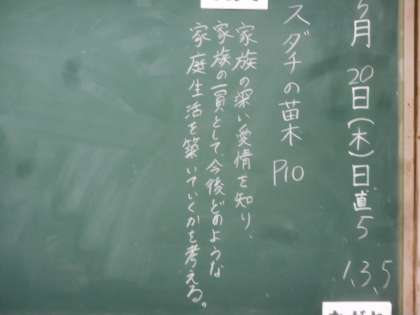 月20日(木)日直5
1,3,5
スダチの苗木 P10
家族の深い愛情を知り、
家族の一員として今後どのような
家庭生活を築いていくかを考える。